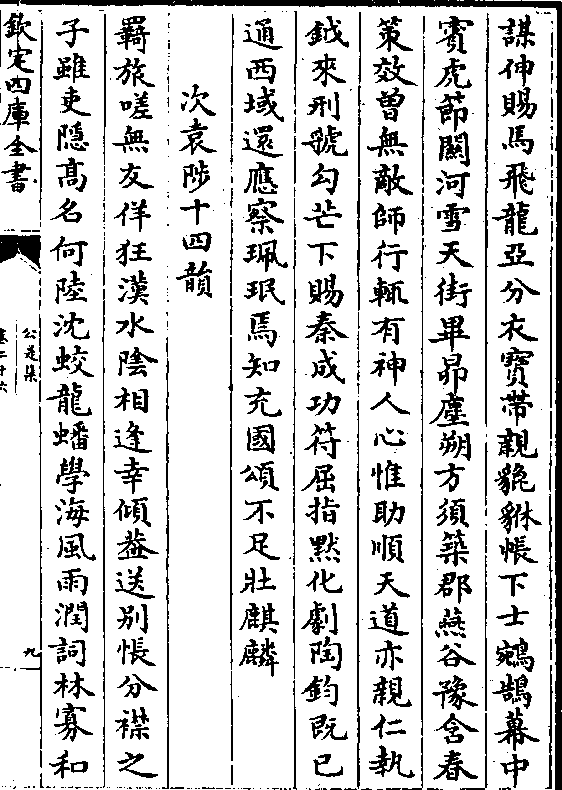 謀伸賜馬飛龍亞分衣寶帶親貔貅帳下士鵷鵠幕中
賓虎節關河雪天街畢昴塵朔方須築郡燕谷豫含春
策效曾無敵師行輒有神人心惟助順天道亦親仁執
鉞來刑虢勾芒下賜秦成功符屈指黙化劇陶鈞既已
通西域還應察珮珉焉知充國頌不足壯麒麟
次袁陟十四韻
羇旅嗟無友佯狂漢水陰相逢幸傾葢送别悵分襟之
子雖吏隱髙名何陸沈蛟龍蟠學海風雨潤詞林寡和
欽定四庫全書
公是集
卷二十六
九